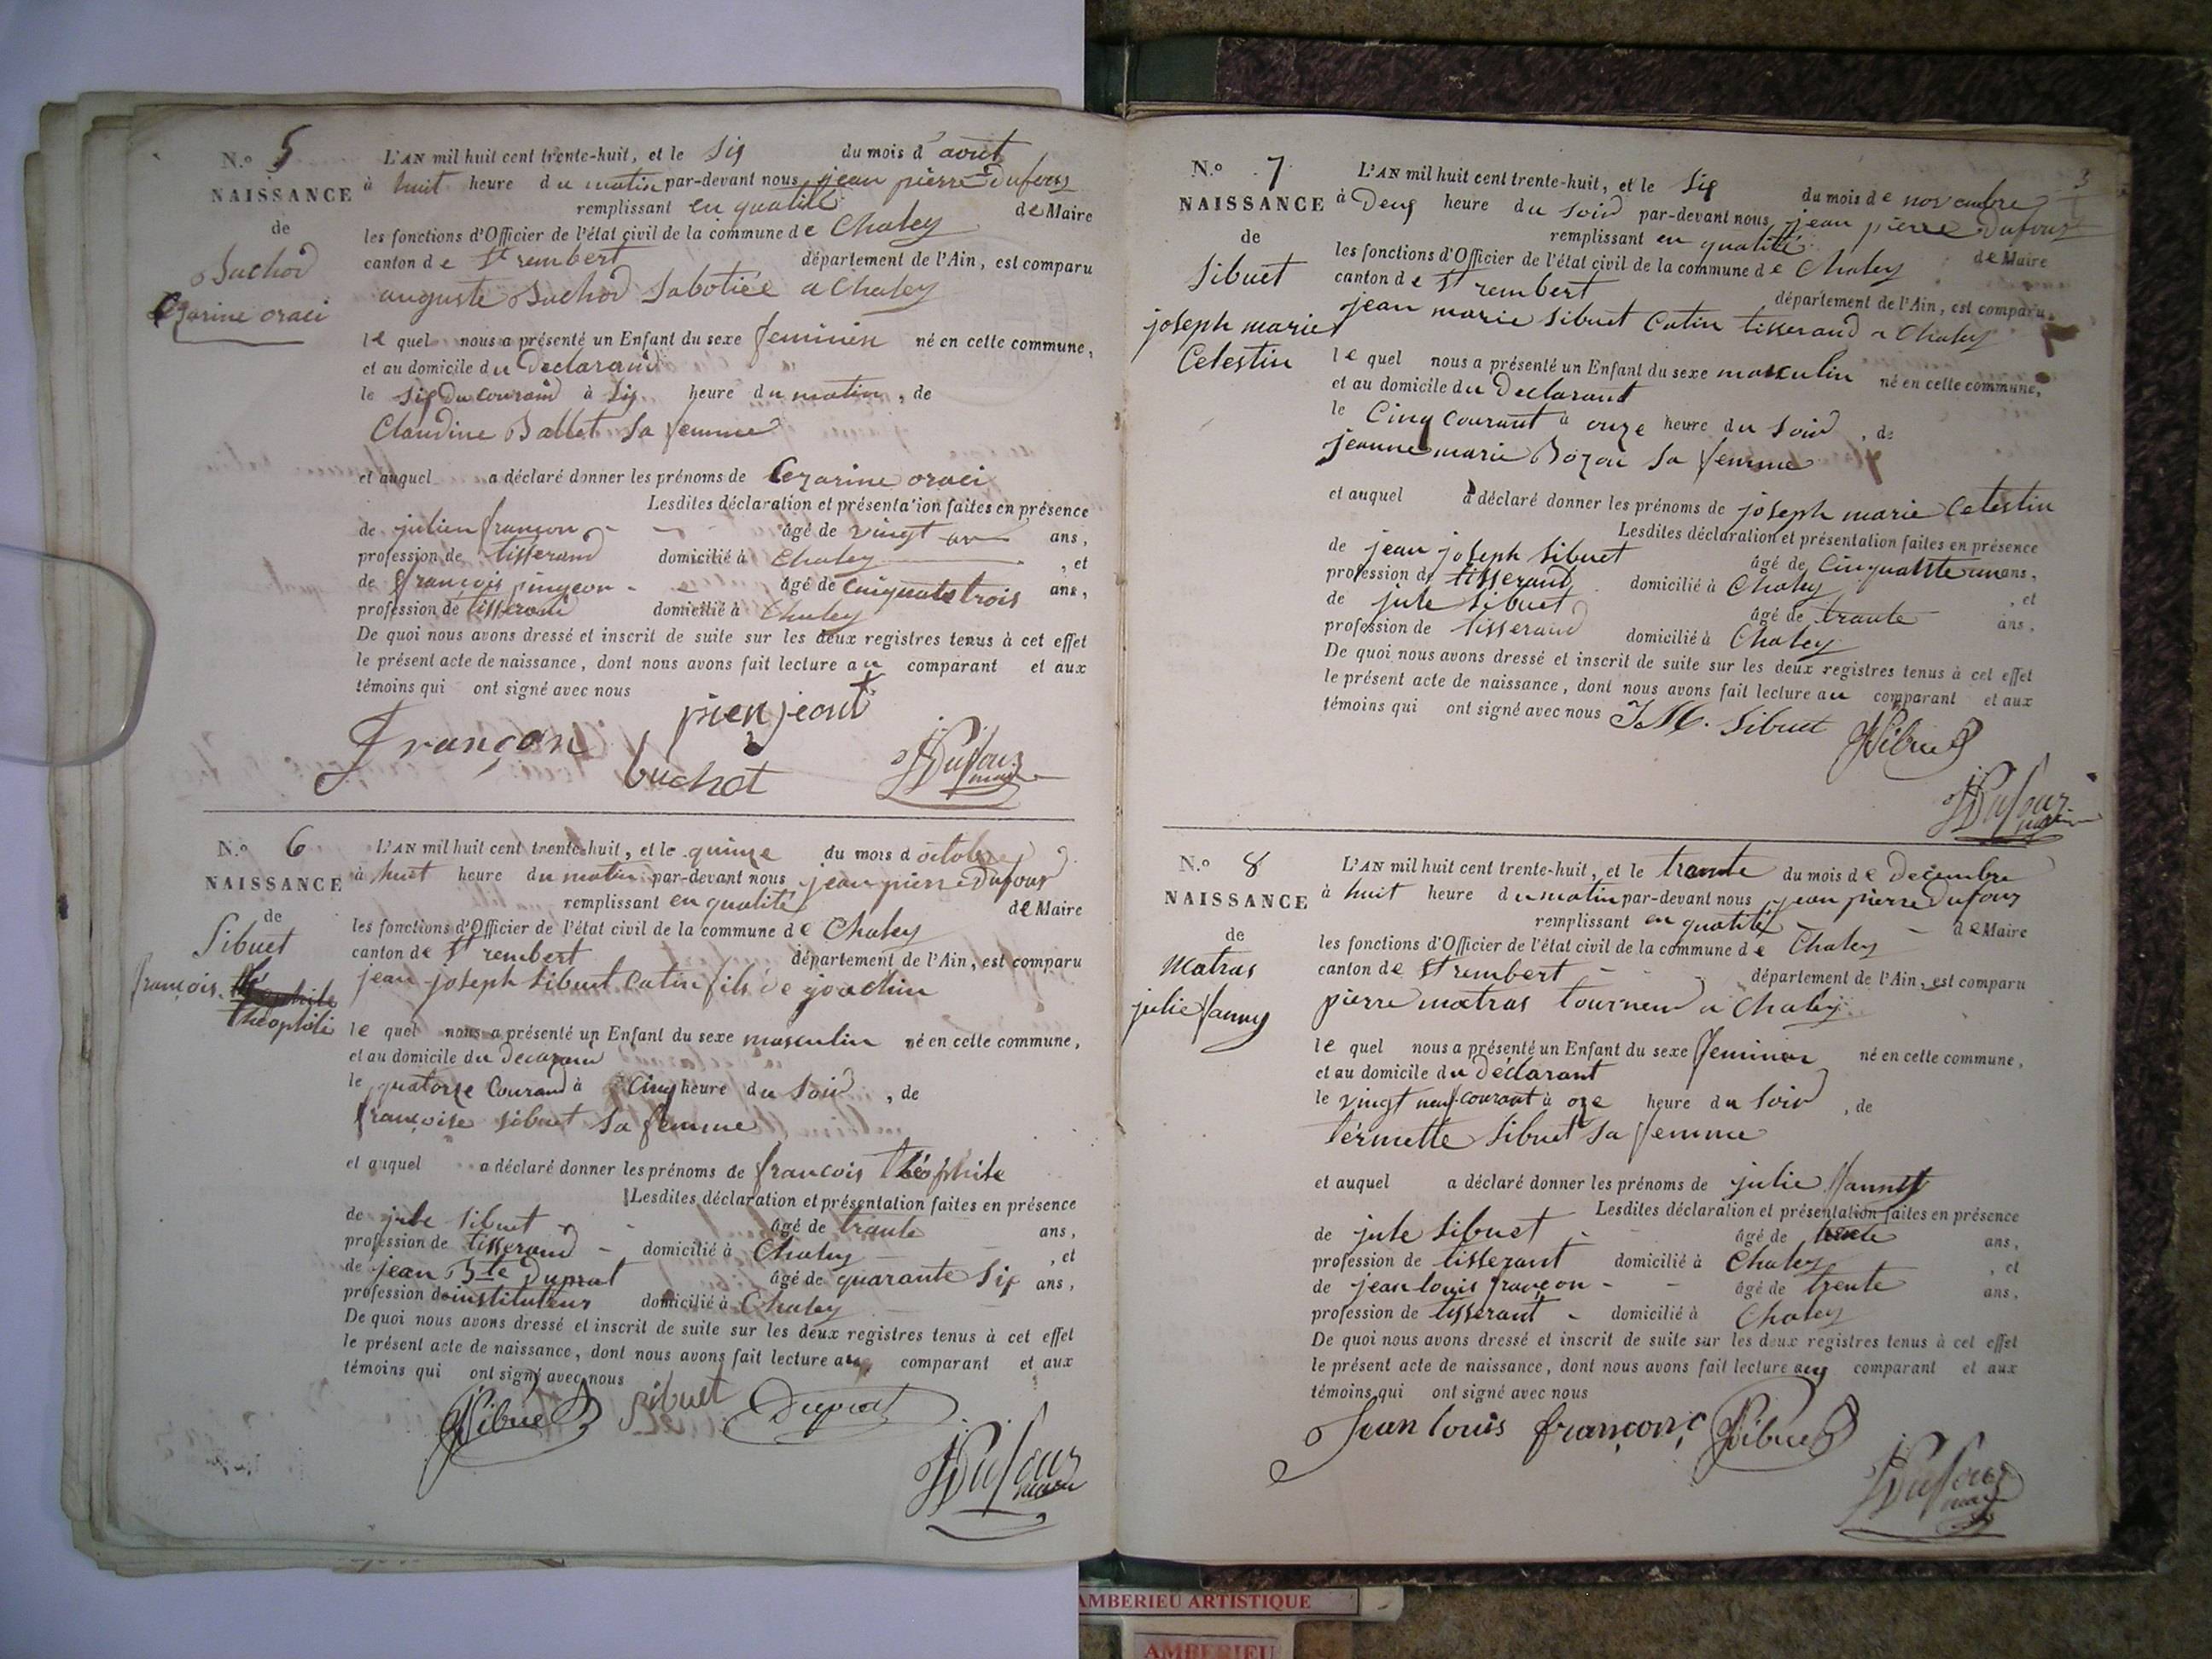 N.o 5
NAISSANCE
de
Buchod
Cezarine oraci
L'AN mil huit cent trente-huit, et le Six du mois d'aout
à huit heure du matin par-devant nous jean pierre Dufour
remplissant en qualité de Maire
les fonctions d'Officier de l'état civil de la commune de Chaley
canton de St rembert département de l'Ain, est comparu
auguste Buchod Sabotiée a Chaley
le quel nous a présenté un Enfant du sexe feminien né en cette commune,
et au domicile du Declarand
le Six du courand à Six heure du matin, de
Claudine Ballet Sa femme
et auquel a déclaré donner les prénoms de Cezarine oraci
Lesdites déclaration et présentation faites en présence
de julien françon âgé de vingt ans,
profession de tisserand domicilié à Chaley, et
de françois pingeon âgé de cinquante trois ans,
profession de tisserand domicilié à Chaley
De quoi nous avons dressé et inscrit de suite sur les deux registres tenus à cet effet
le présent acte de naissance, dont nous avons fait lecture au comparant et aux
témoins qui ont signé avec nous
Françon buchot JPDufour maire
N.o 6
NAISSANCE
de
Sibuet
françois
théophile
L'AN mil huit cent trente-huit, et le quinze du mois d'octobre
à huit heure du matin par-devant nous jean pierre Dufour
remplissant en qualité de Maire
les fonctions d'Officier de l'état civil de la commune de Chaley
canton de St rembert département de l'Ain, est comparu
jean joseph Sibuet Catin fils de joachin
le quel nous a présenté un Enfant du sexe masculin né en cette commune,
et au domicile du
le quatorze Courand à Cinq heure du Soir, de
françoise sibuet Sa femme
et auquel a déclaré donner les prénoms de françois théophile
Lesdites déclaration et présentation faites en présence
de jule Sibuet âgé de trante ans,
profession de tisserand domicilié à Chaley, et
de jean Bte Duprat âgé de quarante Six ans,
profession d'instituteur domicilié à Chaley
De quoi nous avons dressé et inscrit de suite sur les deux registres tenus à cet effet
le présent acte de naissance, dont nous avons fait lecture au comparant et aux
témoins qui ont signé avec nous
JSibuet Sibuet Duprat
JPDufour maire
3
N.o 7
NAISSANCE
de
Sibuet
joseph marie
Celestin
L'AN mil huit cent trente-huit, et le Six du mois de novembre
à Deux heure du Soir par-devant nous jean pierre Dufour
remplissant en qualité de Maire
les fonctions d'Officier de l'état civil de la commune de Chaley
canton de St rembert département de l'Ain, est comparu
jean marie Sibuet Catin tisserand a Chaley
le quel nous a présenté un Enfant du sexe masculin né en cette commune,
et au domicile du Declarant
le Cinq Courant à onze heure du Soir, de
jeanne marie Bozon Sa femme
et auquel a déclaré donner les prénoms de joseph marie Celestin
Lesdites déclaration et présentation faites en présence
de jean joseph Sibuet âgé de Cinquante un ans,
profession de tisserand domicilié à Chaley, et
de jule Sibuet âgé de trante ans,
profession de tisserand domicilié à Chaley
De quoi nous avons dressé et inscrit de suite sur les deux registres tenus à cet effet
le présent acte de naissance, dont nous avons fait lecture au comparant et aux
témoins qui ont signé avec nous JM. Sibuet JSibuet
JPDufour maire
N.o 8
NAISSANCE
de
Matras
julie fanny
L'AN mil huit cent trente-huit, et le trante du mois de Decembre
à huit heure du matin par-devant nous jean pierre Dufour
remplissant en qualité de Maire
les fonctions d'Officier de l'état civil de la commune de Chaley
canton de St rembert département de l'Ain, est comparu
pierre matras tourneur a Chaley
le quel nous a présenté un Enfant du sexe feminien né en cette commune,
et au domicile du Déclarant
le vingt neuf courant à oze heure du Soir, de
Sibuet Sa femme
et auquel a déclaré donner les prénoms de julie
Lesdites déclaration et présentation faites en présence
de jule Sibuet âgé de trente ans,
profession de tisserant domicilié à Chaley, et
de jean louis françon âgé de trente ans,
profession de tisserant domicilié à Chaley
De quoi nous avons dressé et inscrit de suite sur les deux registres tenus à cet effet
le présent acte de naissance, dont nous avons fait lecture au comparant et aux
témoins qui ont signé avec nous
Jean louis françon JSibuet
JPDufour maire
AMBERIEU ARTISTIQUE
AMBERIEU